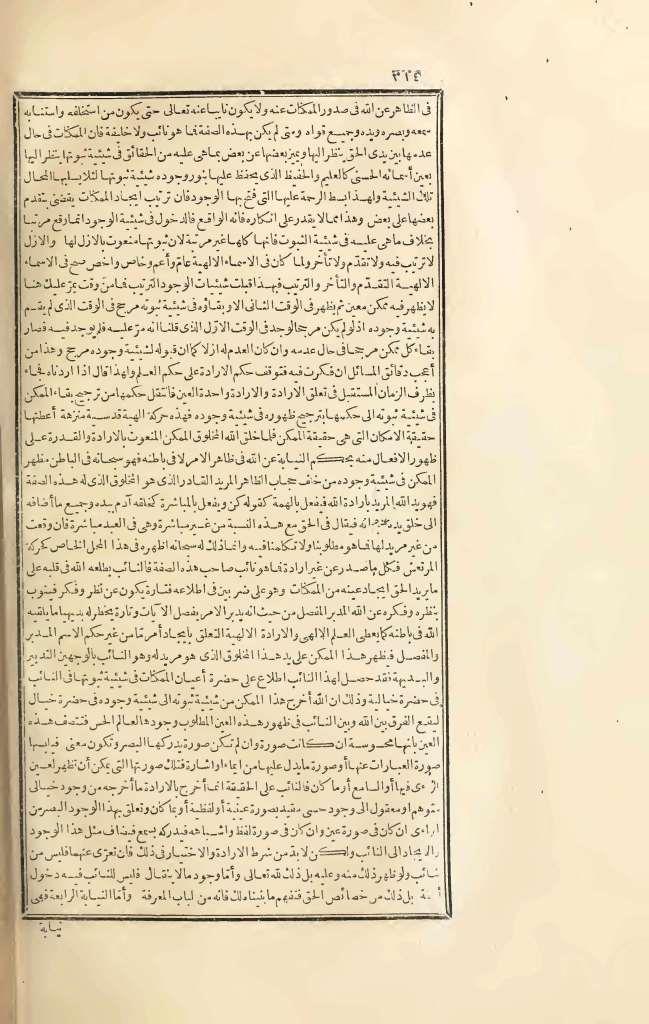 ٣٢٤
فى الظاهر عن الله فى صدور الممكنات عنه ولا يكون نائبا عنه تعالى حتى يكون من استخلفه واستنابه
سمعه وبصره ويده وجميع قواه ومتى لم يكن بهذه الصفة فما هو نائب ولا خليفة فان الممكنات فى حال
عدمها بين يدى الحق ينظر اليها ويميز بعضها عن بعض بما هى عليه من الحقائق فى شيئية ثبوتها ينظر اليها
بعين أسمائه الحسنى كالعليم والحفيظ الذى يحفظ عليها بنور وجوده شيئية ثبوتها لئلا يسلبها المحال
تلك الشيئية ولهذا بسط الرحمة عليها التى فتح بها الوجود فان ترتيب ايجاد الممكنات يقضى بتقدم
بعضها على بعض وهذا مما لا يقدر على انكاره فانه الواقع فالدخول فى شيئية الوجود انما وقع مرتبا
بخلاف ما هى عليه فى شيئية الثبوت فانها كلها غير مرتبة لان ثبوتها منعوت بالازل لها والازل
لا ترتيب فيه ولا تقدّم ولا تأخر ولما كان فى الاسماء الالهية عامّ وأعم وخاص وأخص صح فى الاسماء
الالهية التقدّم والتأخر والترتيب فبهذا قبلت شيئيات الوجود الترتيب فما من وقت يمرّ عليك هنا
لا يظهر فيه ممكن معين ثم يظهر فى الوقت الثانى الا وبقاؤه فى شيئية ثبوته مرجح فى الوقت الذى لم يقم
به شيئية وجوده اذ لو لم يكن مرجحا لوجد فى الوقت الاوّل الذى قلنا انه مرّ عليه فلم يوجد فيه فصار
بقاء كل ممكن مرجحا فى حال عدمه وان كان العدم له ازلا كما ان قبوله لشيئية وجوده مرجح وهذا من
أعجب دقائق المسائل ان فكرت فيه فتوقف حكم الارادة على حكم العلم ولهذا قال اذا اردناه فجاء
بظرف الزمان المستقبل فى تعلق الارادة والارادة واحدة العين فانتقل حكمها من ترجيح بقاء الممكن
فى شيئية ثبوته الى حكمها بترجيح ظهوره فى شيئية وجوده فهذه حركة الهية قدسية منزهة أعطتها
حقيقة الامكان التى هى حقيقة الممكن فلما خلق الله المخلوق الممكن المنعوت بالارادة والقدرة على
ظهور الافعال منه بحكم النيابة عن الله فى ظاهر الامر لا فى باطنه فهو سبحانه فى الباطن مظهر
الممكن فى شيئية وجوده من خلف حجاب الظاهر المريد القادر الذى هو المخلوق الذى له هذه الصفة
فهو يد الله المريد بارادة الله فيفعل بالهمة كقوله كن ويفعل بالمباشرة كخلقه آدم بيده وجميع ما أضافه
الى خلق يده سبحانه فيقال فى الحق مع هذه النسبة من غير مباشرة وهى فى العبد مباشرة فان وقعت
من غير مريد لها فما هو مطلوبنا ولا تكلمنا فيه وانما ذلك له سبحانه اظهره فى هذا المحل الخاص كحركة
المرتعش فكل ما صدر عن غير ارادة فما هو نائب صاحب هذه الصفة فالنائب يطلعه الله فى قلبه على
ما يريد الحق ايجاد عينه من الممكنات وهو على ضربين فى اطلاعه فتارة يكون عن نظر وفكر فينوب
بنظره وفكره عن الله المدبر المفصل من حيث انه يدبر الامر يفصل الآيات وتارة يخطر له بديهيا ما يلقيه
الله فى باطنه كما يعطى العلم الالهى والارادة الالهية التعلق بايجاد أمر مّا من غير حكم الاسم المدبر
والمفصل فيظهر هذا الممكن على يد هذا المخلوق الذى هو مريد له وهو النائب بالوجهين التدبير
والبديهة فقد حصل لهذا النائب اطلاع على حضرة أعيان الممكنات فى شيئية ثبوتها فى النائب
فى حضرة خيالية وذلك ان الله أخرج هذا الممكن من شيئية ثبوته الى شيئية وجوده فى حضرة خيال
ليقع الفرق بين الله وبين النائب فى ظهور هذه العين المطلوب وجودها لعالم الحس فتتصف هذه
العين بانها محسوسة ان كانت صورة وان لم تكن صورة يدركها البصر وتكون معنى فيلبسها
صورة العبارات عنها أو صورة ما يدل عليها من ايماء أو اشارة فتلك صورتها التى يمكن أن تظهر لعين
الرائى فيها أو السامع أو ما كان فالنائب على الحقيقة انما أخرج بالارادة ما أخرجه من وجود خيالى
متوهم أو معقول الى وجود حسى مقيد بصورة عينية أو لفظية أو بما كان وتعلق بهذا الوجود البصر من
الرائى ان كان فى صورة عين وان كان فى صورة لفظ وأشباهه فيدركه بسمع فيضاف مثل هذا الوجود
والايجاد الى النائب ولكن لا بد من شرط الارادة والاختيار فى ذلك فان تعرّى عنهما فليس من
نائب ولو ظهر ذلك منه وعليه بل ذلك لله تعالى وأما وجود ما لا ينقال فليس للنائب فيه دخول
البتة بل ذلك من خصائص الحق فتفهم ما بيناه لك فانه من لباب المعرفة وأما النيابة الرابعة فهى
نيابة